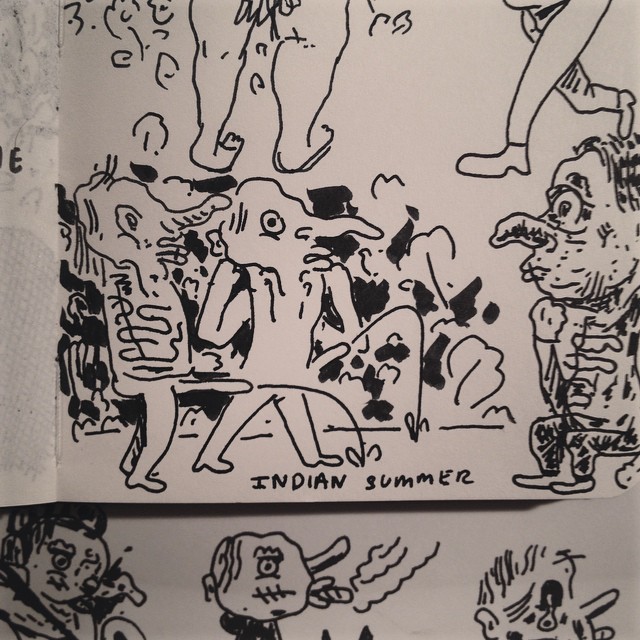 INDIAN SUMMER